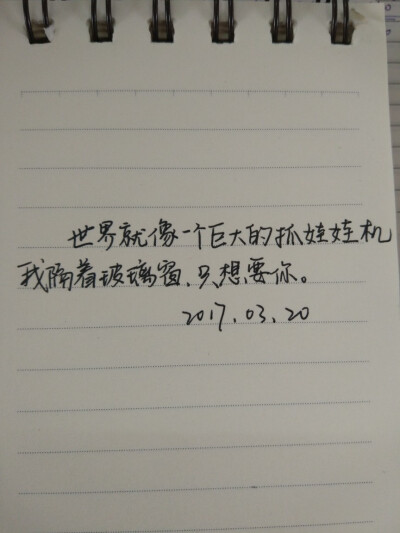 世界就像一个巨大的抓娃娃机
我隔着玻璃窗、只想要你。
2017.03.20